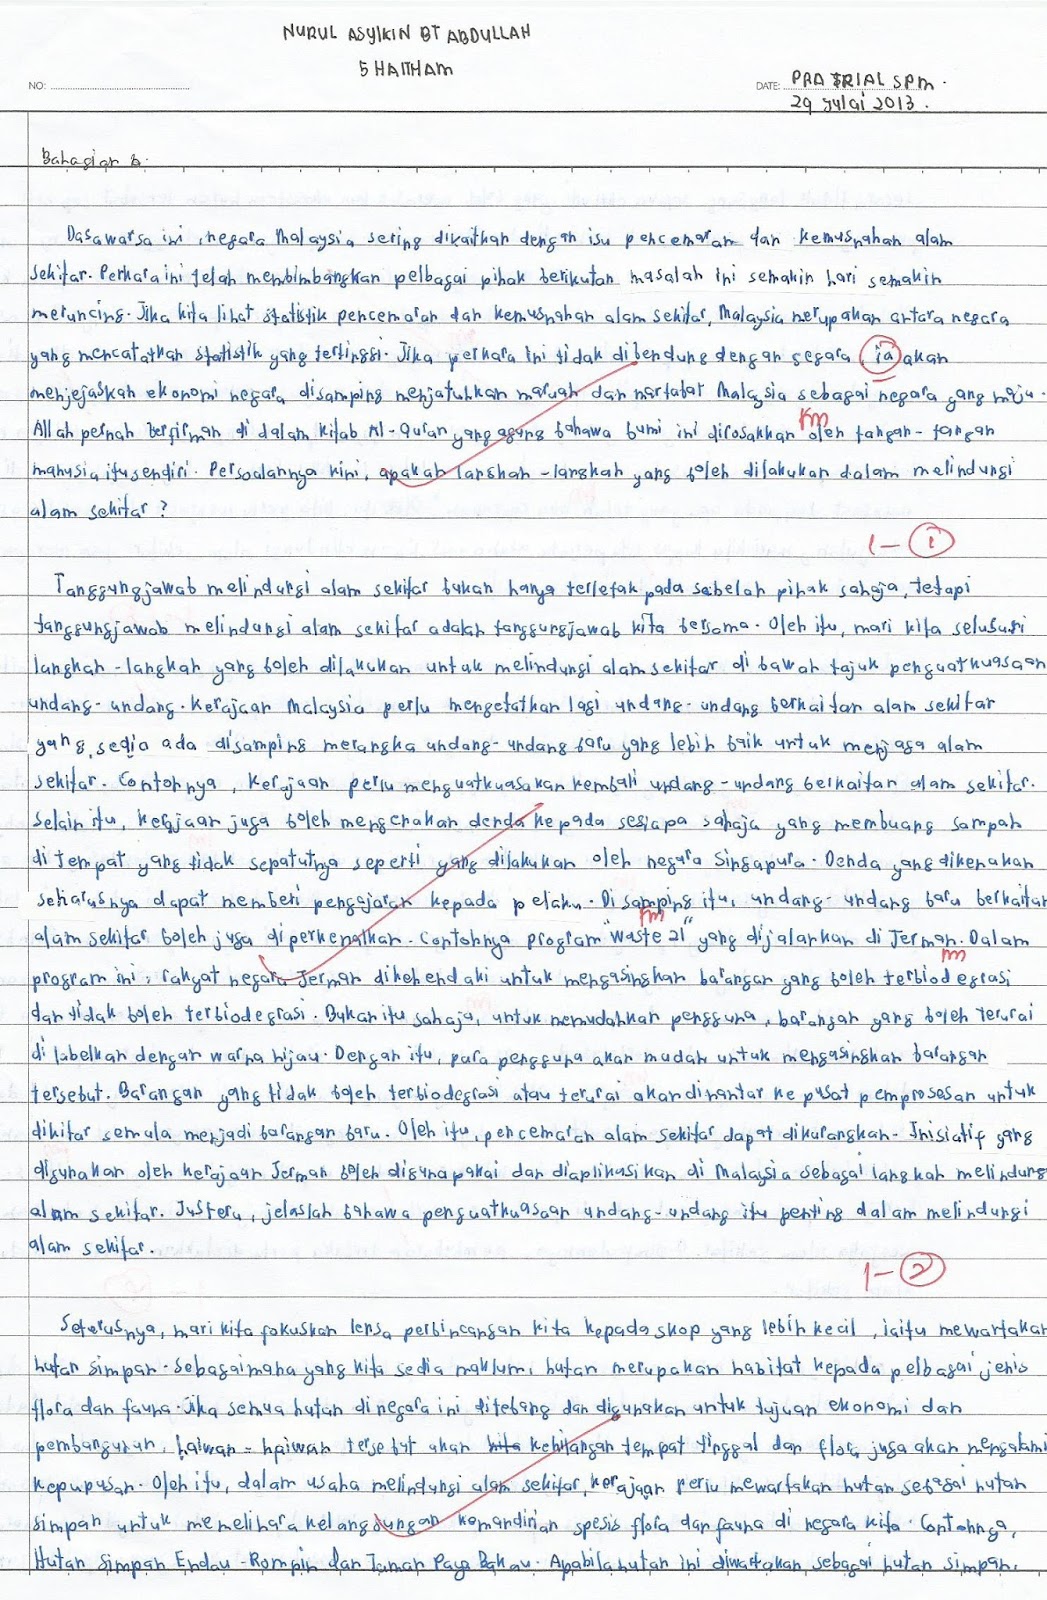 NURUL ASYIKIN BT ABDULLAH
5 HAITHAM
NO:
DATE: PRA TRIAL SPM.
29 Julai 2013.
Bahagian B.
Dasawarsa ini, negara Malaysia sering dikaitkan dengan isu pencemaran dan kemusnahan alam
sekitar. Perkara ini telah membimbangkan pelbagai pihak berikutan masalah ini semakin hari semakin
meruncing. Jika kita lihat statistik pencemaran dan kemusnahan alam sekitar, Malaysia merupakan antara negara
yang mencatatkan statistik yang tertinggi. Jika perkara ini tidak dibendung dengan segara, ia akan
menjejaskan ekonomi negara disamping menjatuhkan maruah dan martabat Malaysia sebagai negara yang maju.
km
Allah pernah berfirman di dalam kitab Al-Quran yang agung bahawa bumi ini dirosakkan oleh tangan-tangan
manusia itu sendiri. Persoalannya kini, apakah langkah-langkah yang boleh dilakukan dalam melindungi
alam sekitar?
1-1
Tanggungjawab melindungi alam sekitar bukan hanya terletak pada sebelah pihak sahaja, tetapi
tanggungjawab melindungi alam sekitar adalah tanggungjawab kita bersama. Oleh itu, mari kita selusuri
langkah-langkah yang boleh dilakukan untuk melindungi alam sekitar di bawah tajuk penguatkuasaan
undang-undang. Kerajaan Malaysia perlu mengetatkan lagi undang-undang berkaitan alam sekitar
yang sedia ada disamping merangka undang-undang baru yang lebih baik untuk menjaga alam
sekitar. Contohnya, kerajaan perlu menguatkuasakan kembali undang-undang berkaitan alam sekitar.
Selain itu, kerajaan juga boleh mengenakan denda kepada sesiapa sahaja yang membuang sampah
di tempat yang tidak sepatutnya seperti yang dilakukan oleh negara Singapura. Denda yang dikenakan
seharusnya dapat memberi pengajaran kepada pelaku. Di samping itu, undang-undang baru berkaitan
fm
alam sekitar boleh juga diperkenalkan. Contohnya program "Waste 21" yang dijalankan di Jerman. Dalam
fm
program ini, rakyat negara Jerman dikehendaki untuk mengasingkan barangan yang boleh terbiodegrasi
dan tidak boleh terbiodegrasi. Bukan itu sahaja, untuk memudahkan pengguna, barangan yang boleh terurai
di labelkan dengan warna hijau. Dengan itu, para pengguna akan mudah untuk mengasingkan barangan
tersebut. Barangan yang tidak boleh terbiodegrasi atau terurai akan dihantar ke pusat pemprosesan untuk
dikitar semula menjadi barangan baru. Oleh itu, pencemaran alam sekitar dapat dikurangkan. Inisiatif yang
digunakan oleh kerajaan Jerman boleh digunapakai dan diaplikasikan di Malaysia sebagai langkah melindungi
alam sekitar. Justeru, jelaslah bahawa penguatkuasaan undang-undang itu penting dalam melindungi
alam sekitar.
1-2
Seterusnya, mari kita fokuskan lensa perbincangan kita kepada skop yang lebih kecil, iaitu mewartakan
hutan simpan. Sebagaimana yang kita sedia maklum, hutan merupakan habitat kepada pelbagai jenis
flora dan fauna. Jika semua hutan di negara ini ditebang dan digunakan untuk tujuan ekonomi dan
pembangunan, haiwan-haiwan tersebut akan kehilangan tempat tinggal dan flora juga akan mengalami
kepupusan. Oleh itu, dalam usaha melindungi alam sekitar, kerajaan perlu mewartakan hutan sebagai hutan
simpan untuk memelihara kelangsungan kemandirian spesis flora dan fauna di negara kita. Contohnya,
Hutan Simpan Endau-Rompin dan Taman Paya Bakau. Apabila hutan ini diwartakan sebagai hutan simpan,